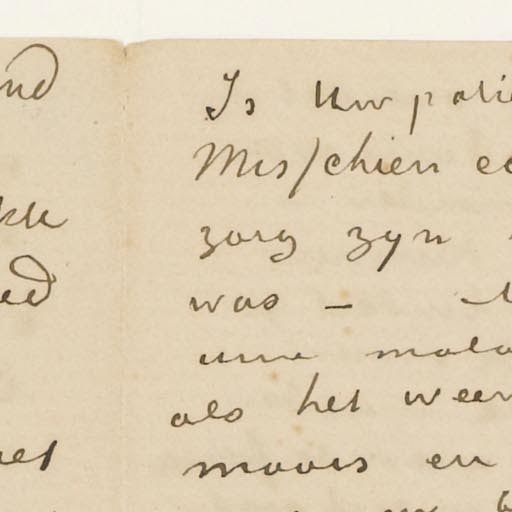 nd
kk
ed
het
Is Uw patie
Misschien ee
zorg zyn
was –
uwe mala
als het weer
moois en